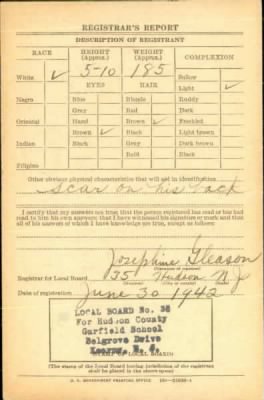 REGISTRAR'S REPORT
DESCRIPTION OF REGISTRANT
RACE HEIGHT (Approx.) WEIGHT (Approx.) COMPLEXION
White ✓ 5-10 185 Sallow
EYES HAIR Light ✓
Negro Blue Blonde Ruddy
Gray Red Dark
Oriental Hazel Brown ✓ Freckled
Brown ✓ Black Light brown
Indian Black Gray Dark brown
Bald Black
Filipino
Other obvious physical characteristics that will aid in identification
Scar on his back
I certify that my answers are true; that the person registered has read or has had
read to him his own answers; that I have witnessed his signature or mark and that
all of his answers of which I have knowledge are true, except as follows:
Josephine Gleason
(Signature of registrar)
Registrar for Local Board 35 Hudson N.J.
(Number) (City or county) (State)
Date of registration June 30 1942
LOCAL BOARD No. 35
For Hudson County
Garfield School
Belgrove Drive
Kearny, N. J.
(STAMP OF LOCAL BOARD)
(The stamp of the Local Board having jurisdiction of the registrant
shall be placed in the above space)
U. S. GOVERNMENT PRINTING OFFICE